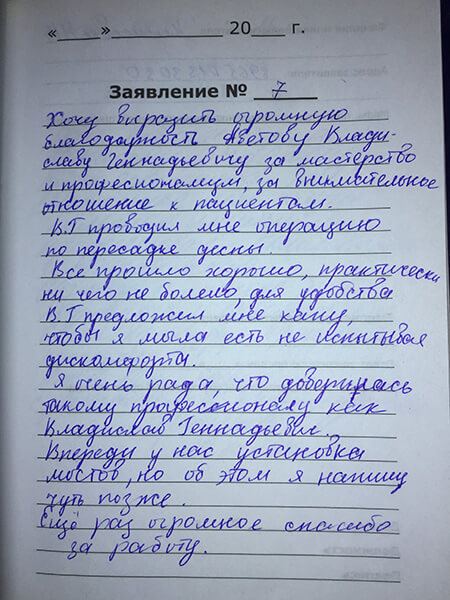 «____»____________ 20___ г.
Заявление № 7
Хочу выразить огромную
благодарность Аветову Влади-
славу Геннадьевичу за мастерство
и професионализм, за внимательное
отношение к пациентам.
В.Г проводил мне операцию
по пересадке десны.
Все прошло хорошо, практически
ни чего не болело, для удобства
В.Г предложил мне капу,
чтобы я могла есть не испытывая
дискомфорта.
Я очень рада, что доверилась
такому професионалу как
Владислав Геннадьевич.
Впереди у нас установка
мостов, но об этом я напишу
чуть позже.
Ещё раз огромное спасибо
за работу.